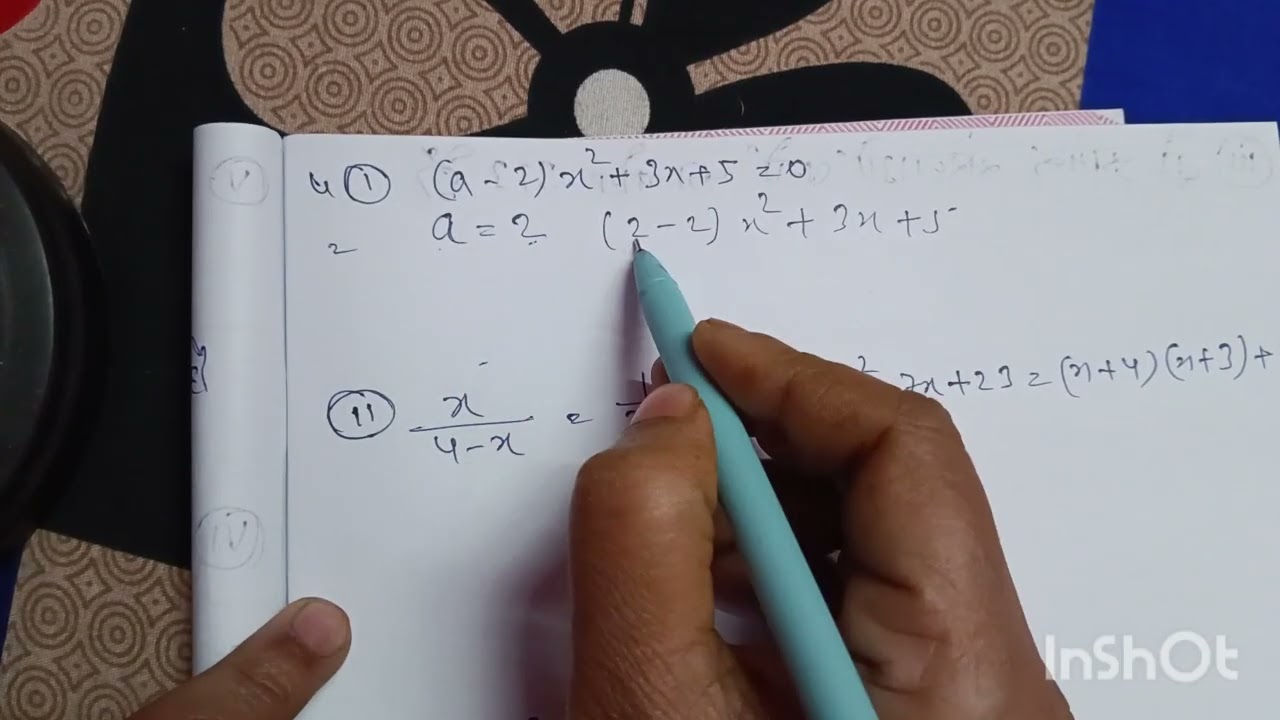 4 (i) (a-2)x²+3x+5=0
2 a=2 (2-2)x²+3x+5
(ii) x/(4-x) =
7x+23=(x+4)(x+3)+
V
IV
InShOt